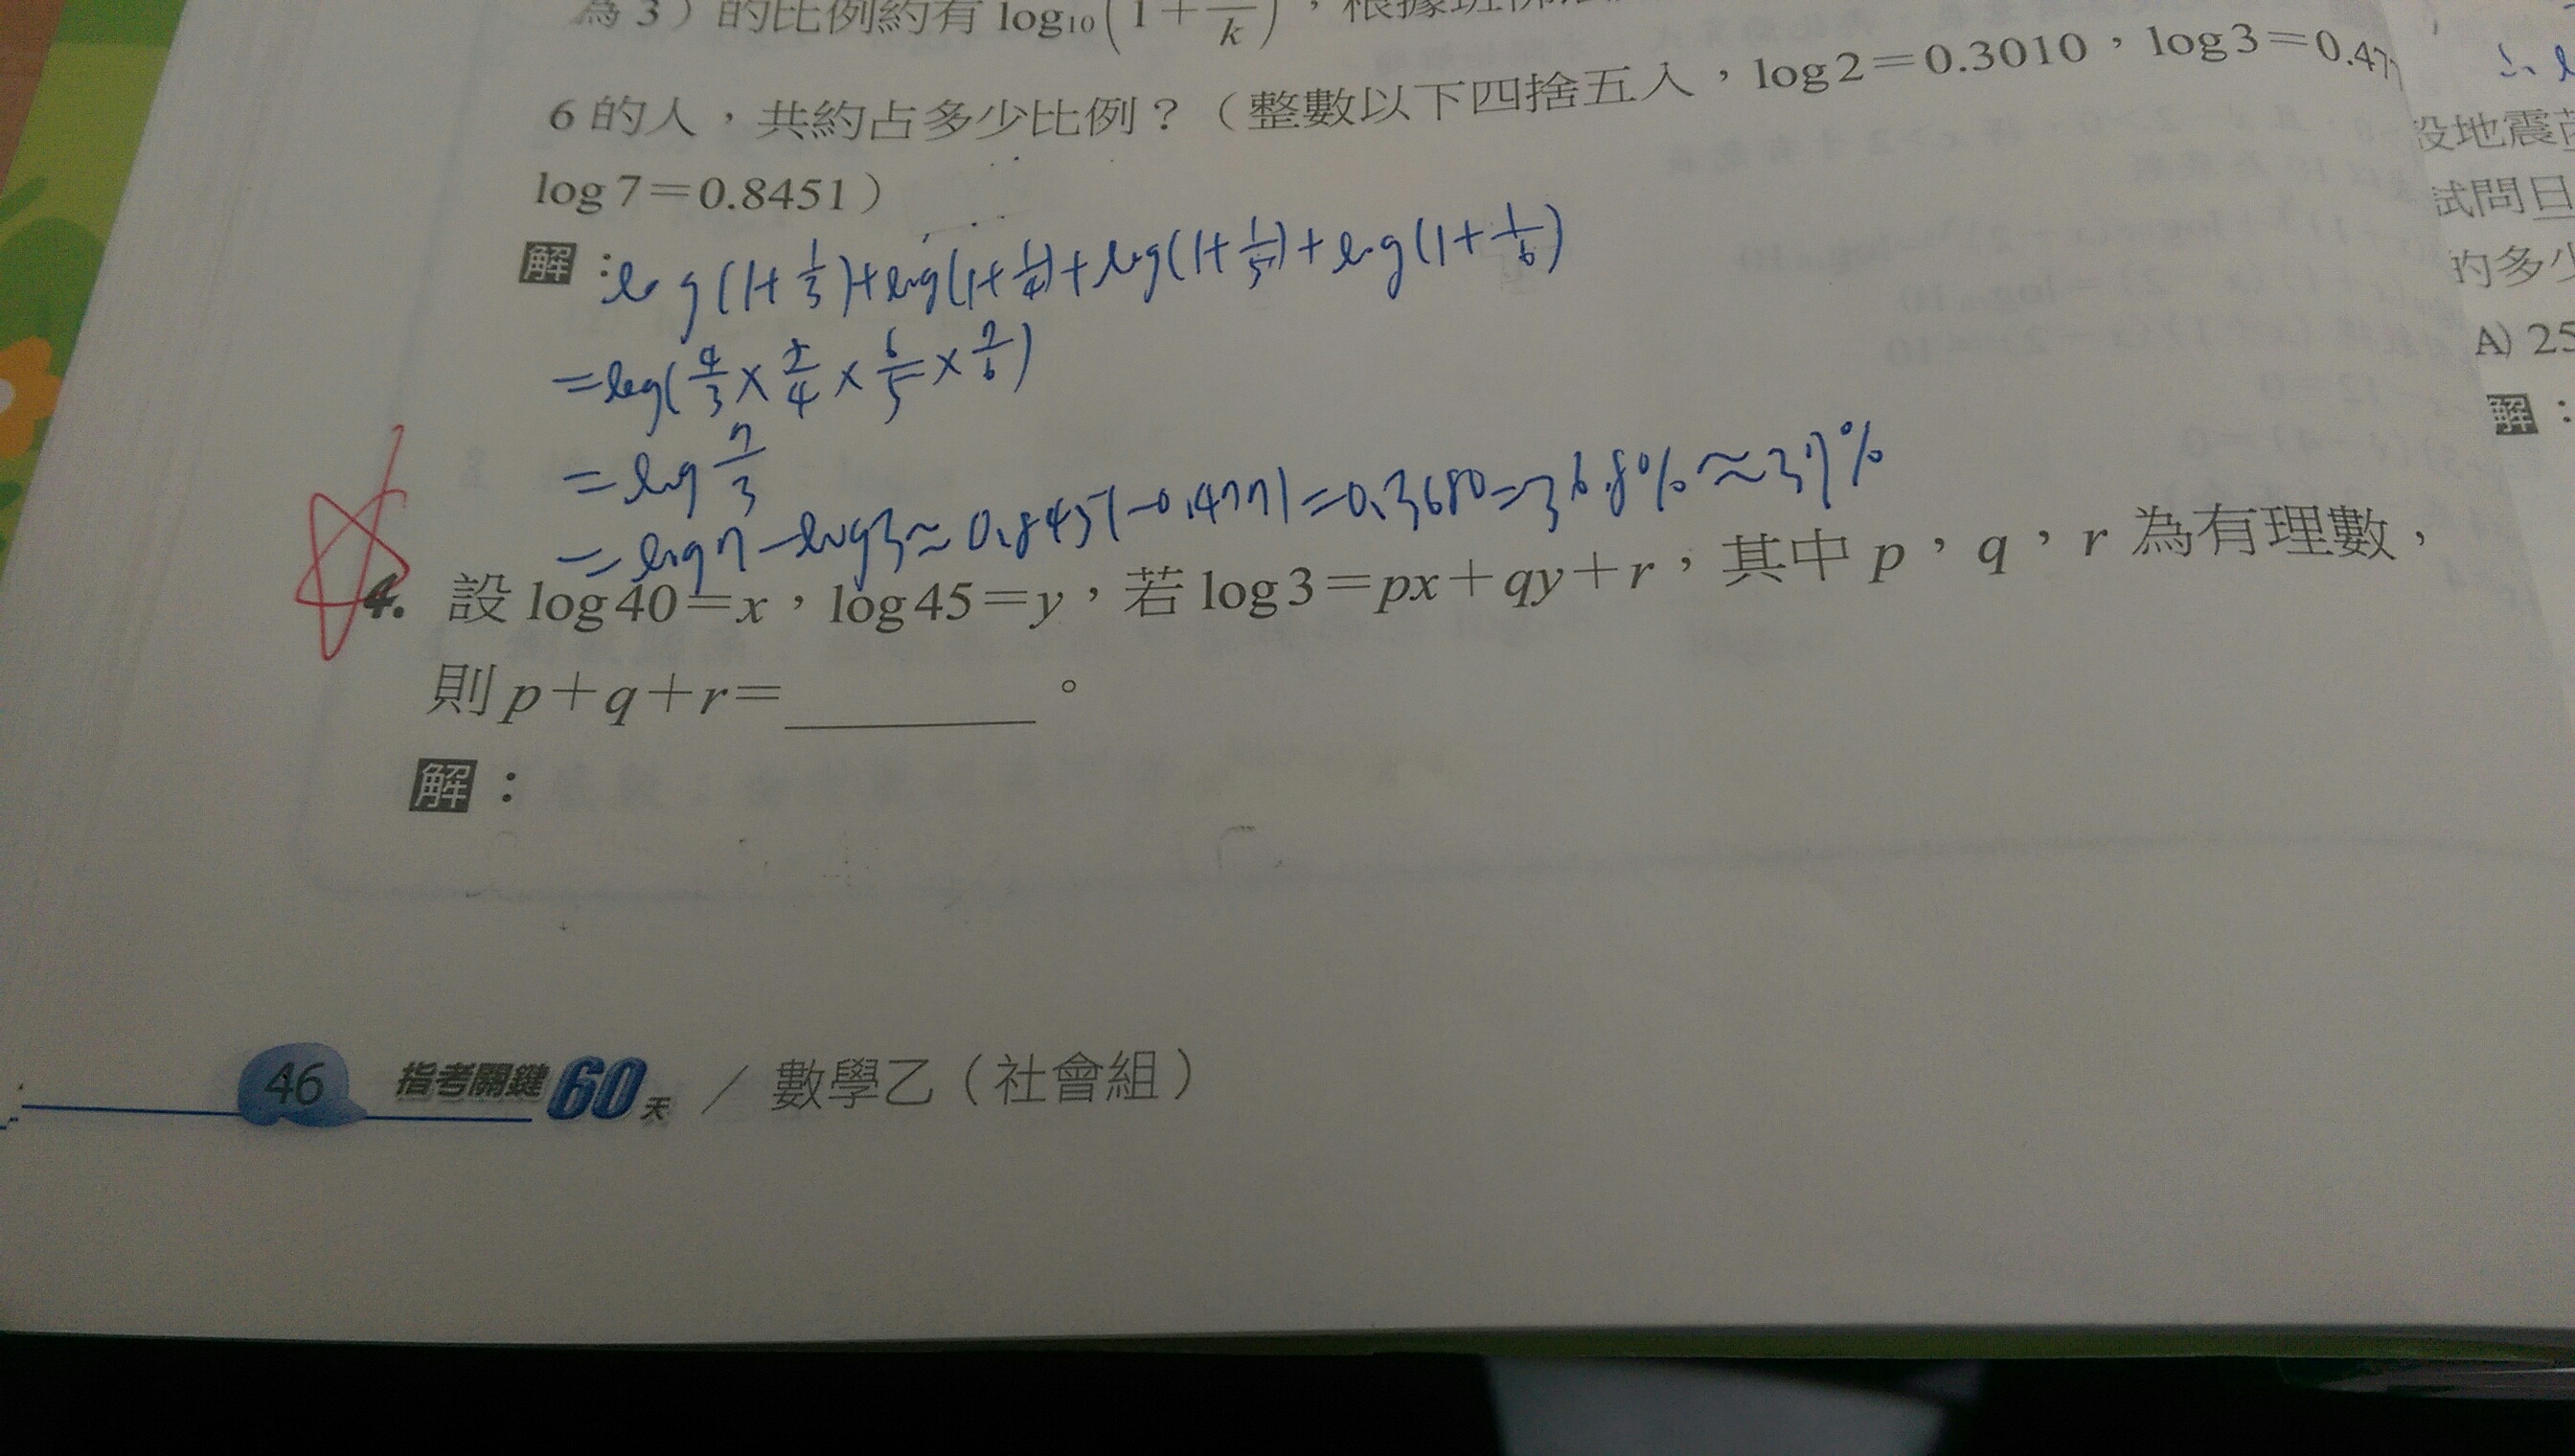 為 3）的比例約有 log₁₀(1+—/k)，根據班佛
6 的人，共約占多少比例？（整數以下四捨五入，log 2＝0.3010，log 3＝0.47
log 7＝0.8451）
解：log(1+1/3)+log(1+1/4)+log(1+1/5)+log(1+1/6)
=log(4/3×5/4×6/5×7/6)
=log 7/3
=log7-log3≈0.8451-0.4771=0.3680=36.8%≈37%
4. 設 log 40＝x，log 45＝y，若 log 3＝px＋qy＋r，其中 p，q，r 為有理數，
則 p＋q＋r＝______。
解：
46 指考關鍵60天 ／ 數學乙（社會組）
設地震
試問日
的多少
A) 25
解：